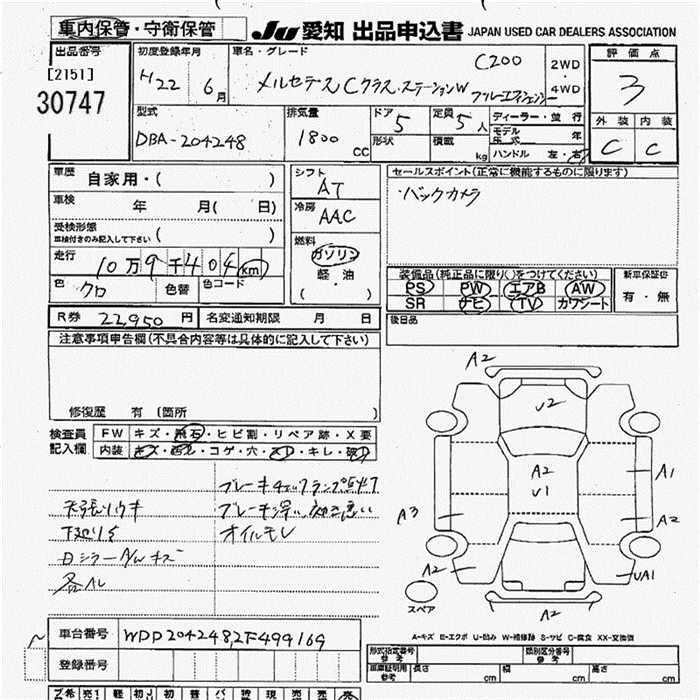 車内保管・守衛保管
JU 愛知 出品申込書 JAPAN USED CAR DEALERS ASSOCIATION
出品番号
[2151]
30747
初度登録年月
H22 6月
車名・グレード
C200
メルセデス Cクラス.ステーションW
2WD
・
4WD
評価点
3
外装 内装
C C
型式
DBA-204248
排気量
1800 cc
ドア
5
形状
定員
5人
積載 kg
ディーラー・並行
モデル年式 年
ハンドル 左・右
車歴 自家用・( )
車検 年 月( 日)
受検形態
車検付きのみ記入して下さい ( )
走行 10万9千404 km
色 クロ 色替 色コード
シフト
AT
冷房
AAC
燃料
ガソリン
軽・油
( )
セールスポイント(正常に機能するものに限ります)
・バックカメラ
装備品(純正品に限り○をつけてください)
PS PW エアB AW
SR ナビ TV カワシート
新車保証書
有・無
R券 22,950円 名変通知期限 月 日
後日品
注意事項申告欄(不具合内容等は具体的に記入して下さい)
修復歴 有 (箇所 )
検査員記入欄
FW キズ・飛石・ヒビ割・リペア跡・X要
内装 キズ・汚れ・コゲ・穴・スレ・キレ・破レ
オイルモレ
A2
U2
A2
U1
A1
A3
A2
A2
UA1
A2
スペア
A-キズ E-エクボ U-凹み W-補修跡 S-サビ C-腐食 XX-交換済
車台番号 WDD2042482F499169
登録番号
形式指定番号 参考
類別区分番号 参考
車庫証明用 参考 長さ cm 幅 cm 高さ cm